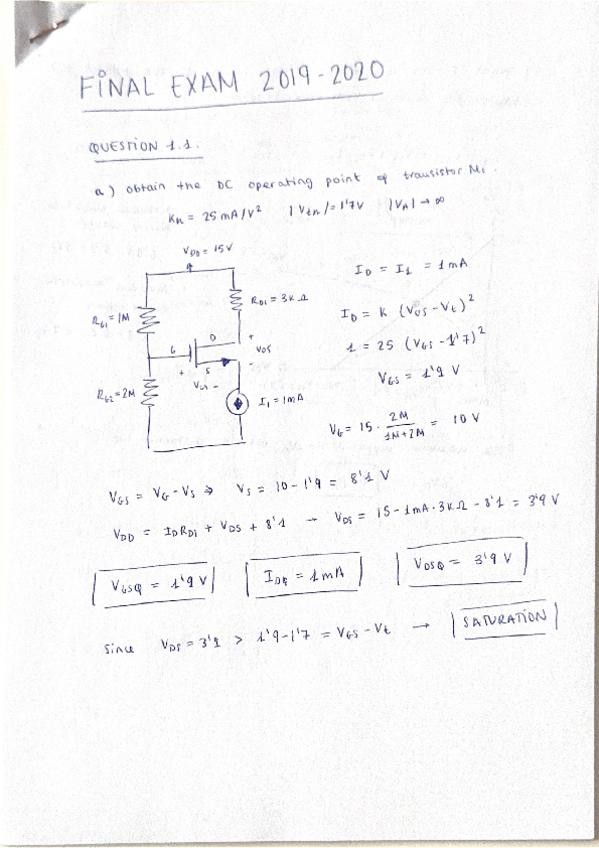 FINAL EXAM 2019-2020
QUESTION 1.1.
a) obtain the DC operating point of transistor M1.
Kn = 25 mA/V² |Vtn| = 1'7V |VA| → ∞
VDD = 15V
RG1 = 1M
RD1 = 3K Ω
G
D
S
+
VDS
-
+
VGS -
RG2 = 2M
I1 = 1mA
ID = I1 = 1mA
ID = K (VGS - Vt)²
1 = 25 (VGS - 1'7)²
VGS = 1'9 V
VG = 15 · 2M / 1M+2M = 10 V
VGS = VG - VS ⇒ VS = 10 - 1'9 = 8'1 V
VDD = ID RD1 + VDS + 8'1 → VDS = 15 - 1mA · 3K Ω - 8'1 = 3'9 V
VGSQ = 1'9 V IDQ = 1mA VDSQ = 3'9 V
Since VDS = 3'9 > 1'9 - 1'7 = VGS - Vt → SATURATION